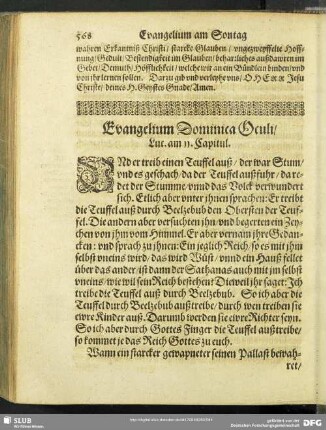 568 Evangelium am Sontag
wahren Erkantniß Christi / starcke Glauben / vngezweyffelte Hoff-
nung / Gedult / Bestendigkeit im Glauben / beharliches außdawren im
Gebet / Demuth / Höfflichkeit / welche wir an ein Bündlein binden / vnd
von jhr lernen sollen. Dar zu gib vnd verleyh vns / O HErr Jesu
Christe / deines H. Geystes Gnade / Amen.
Evangelium Dominica Oculi /
Luc. am 11. Capitul.
VNd er treib einen Teuffel auß / der war Stum /
vnd es geschach / da der Teuffel außfuhr / da re-
det der Stumme / vnnd das Volck verwundert
sich. Etlich aber vnter jhnen sprachen: Er treibt
die Teuffel auß durch Belzebub den Obersten der Teuf-
fel. Die andern aber versuchten jhn / vnd begerten ein Zey-
chen von jhm vom Himmel. Er aber vernam jhre Gedan-
cken: vnd sprach zu jhnen: Ein jeglich Reich / so es mit jhm
selbst vneins wird / das wird Wüst / vnnd ein Hauß fellet
über das ander / ist dann der Sathanas auch mit jm selbst
vneins / wie wil sein Reich bestehen? Dieweil jhr saget: Jch
treibe die Teuffel auß durch Belzebub. So ich aber die
Teuffel durch Belzebub außtreibe / durch wen treiben sie
ewre Kinder auß. Darumb werden sie ewre Richter seyn.
So ich aber durch Gottes Finger die Teuffel außtreibe /
so kommet je das Reich Gottes zu euch.
Wann ein starcker gewapneter seinen Pallast bewah-
ret /
SLUB
Wir führen Wissen.
gefördert von der
Deutschen Forschungsgemeinschaft
DFG